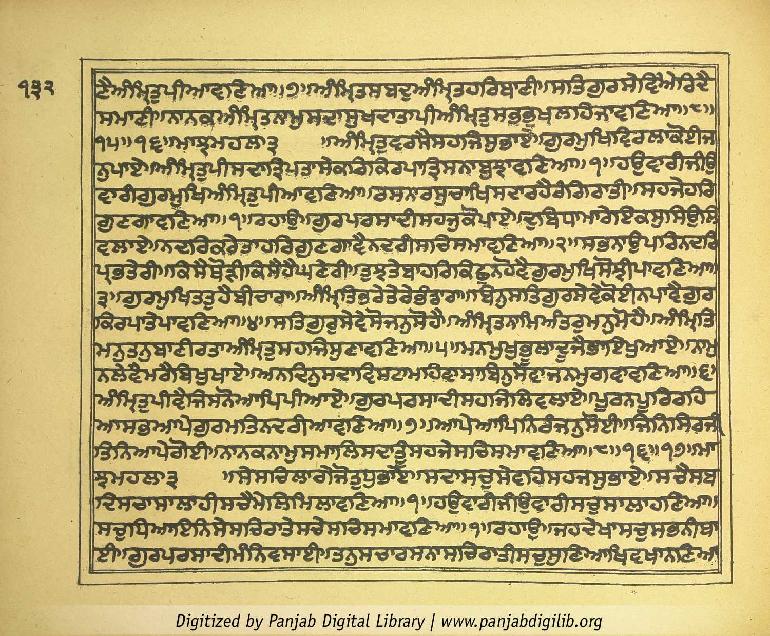 ੧੩੨
ਣੈਅੰਮ੍ਰਿਤੁਪੀਆਵਣਿਆ॥੭॥ਅੰਮ੍ਰਿਤਸਬਦੁਅੰਮ੍ਰਿਤਹਰਿਬਾਣੀ॥ਸਤਿਗੁਰਸੇਵਿਐਰਿਦੈ
ਸਮਾਣੀ॥ਨਾਨਕਅੰਮ੍ਰਿਤਨਾਮੁਸਦਾਸੁਖਦਾਤਾਪੀਅੰਮ੍ਰਿਤੁਸਭਭੁਖਲਹਿਜਾਵਣਿਆ॥੮॥
੧੫॥੧੬॥ਮਾਝਮਹਲਾ੩ ਅੰਮ੍ਰਿਤੁਵਰਸੈਸਹਜਿਸੁਭਾਏ॥ਗੁਰਮੁਖਿਵਿਰਲਾਕੋਈਜ
ਨੁਪਾਏ॥ਅੰਮ੍ਰਿਤੁਪੀਸਦਾਤ੍ਰਿਪਤਾਸੇਕਰਿਕਿਰਪਾਤ੍ਰਿਸਨਾਬੁਝਾਵਣਿਆ॥੧॥ਹਉਵਾਰੀਜੀਉ
ਵਾਰੀਗੁਰਮੁਖਿਅੰਮ੍ਰਿਤੁਪੀਆਵਣਿਆ॥ਰਸਨਾਰਸੁਚਾਖਿਸਦਾਰਹੈਰੰਗਿਰਾਤੀ॥ਸਹਜੇਹਰਿ
ਗੁਣਗਾਵਣਿਆ॥੧॥ਰਹਾਉ॥ਗੁਰਪਰਸਾਦੀਸਹਜੁਕੋਪਾਏ॥ਦੁਬਿਧਾਮਾਰੇਇਕਸੁਸਿਉਲਿ
ਵਲਾਏ॥ਨਦਰਿਕਰੇਤਾਹਰਿਗੁਣਗਾਵੈਨਦਰੀਸਚਿਸਮਾਵਣਿਆ॥੨॥ਸਭਨਾਉਪਰਿਨਦਰਿ
ਪ੍ਰਭਤੇਰੀ॥ਕਿਸੈਥੋੜੀਕਿਸੈਹੈਘਣੇਰੀ॥ਤੁਝਤੇਬਾਹਰਿਕਿਛੁਨਹੋਵੈਗੁਰਮੁਖਿਸੋਝੀਪਾਵਣਿਆ॥
੩॥ਗੁਰਮੁਖਿਤਤੁਹੈਬੀਚਾਰਾ॥ਅੰਮ੍ਰਿਤਿਭਰੇਤੇਰੇਭੰਡਾਰਾ॥ਬਿਨੁਸਤਿਗੁਰਸੇਵੇਕੋਈਨਪਾਵੈਗੁਰ
ਕਿਰਪਾਤੇਪਾਵਣਿਆ॥੪॥ਸਤਿਗੁਰੁਸੇਵੈਸੋਜਨੁਸੋਹੈ॥ਅੰਮ੍ਰਿਤਨਾਮਿਅੰਤਰੁਮਨੁਮੋਹੈ॥ਅੰਮ੍ਰਿਤਿ
ਮਨੁਤਨੁਬਾਣੀਰਤਾਅੰਮ੍ਰਿਤੁਸਹਜਿਸੁਣਾਵਣਿਆ॥੫॥ਮਨਮੁਖੁਭੂਲਾਦੂਜੈਭਾਇਖੁਆਏ॥ਨਾਮੁ
ਨਲੇਵੈਮਰੈਬਿਖੁਖਾਏ॥ਅਨਦਿਨੁਸਦਾਵਿਸਟਾਮਹਿਵਾਸਾਬਿਨੁਸੇਵਾਜਨਮੁਗਵਾਵਣਿਆ॥੬॥
ਅੰਮ੍ਰਿਤੁਪੀਵੈਜਿਸਨੋਆਪਿਪੀਆਏ॥ਗੁਰਪਰਸਾਦੀਸਹਜਿਲਿਵਲਾਏ॥ਪੂਰਨਪੂਰਿਰਹਿ
ਆਸਭਆਪੇਗੁਰਮਤਿਨਦਰੀਆਵਣਿਆ॥੭॥ਆਪੇਆਪਿਨਿਰੰਜਨੁਸੋਈ॥ਜਿਨਿਸਿਰਜੀ
ਤਿਨਿਆਪੇਗੋਈ॥ਨਾਨਕਨਾਮੁਸਮਾਲਿਸਦਾਤੂੰਸਹਜੇਸਚਿਸਮਾਵਣਿਆ॥੮॥੧੬॥੧੭॥ਮਾ
ਝਮਹਲਾ੩ ॥ਸੇਸਚਿਲਾਗੇਜੋਤੁਧੁਭਾਏ॥ਸਦਾਸਚੁਸੇਵਹਿਸਹਜਸੁਭਾਏ॥ਸਚੈਸਬ
ਦਿਸਚਾਸਾਲਾਹੀਸਚੈਮੇਲਿਮਿਲਾਵਣਿਆ॥੧॥ਹਉਵਾਰੀਜੀਉਵਾਰੀਸਚੁਸਾਲਾਹਣਿਆ॥
ਸਚੁਧਿਆਇਨਿਸੇਸਚਿਰਾਤੇਸਚੇਸਚਿਸਮਾਵਣਿਆ॥੧॥ਰਹਾਉ॥ਜਹਦੇਖਾਸਚੁਸਭਨੀਥਾ
ਈ॥ਗੁਰਪਰਸਾਦੀਮੰਨਿਵਸਾਈ॥ਤਨੁਸਚਾਰਸਨਾਸਚਿਰਾਤੀਸਚੁਸੁਣਿਆਖਿਵਖਾਨਣਿਆ
Digitized by Panjab Digital Library | www.panjabdigilib.org